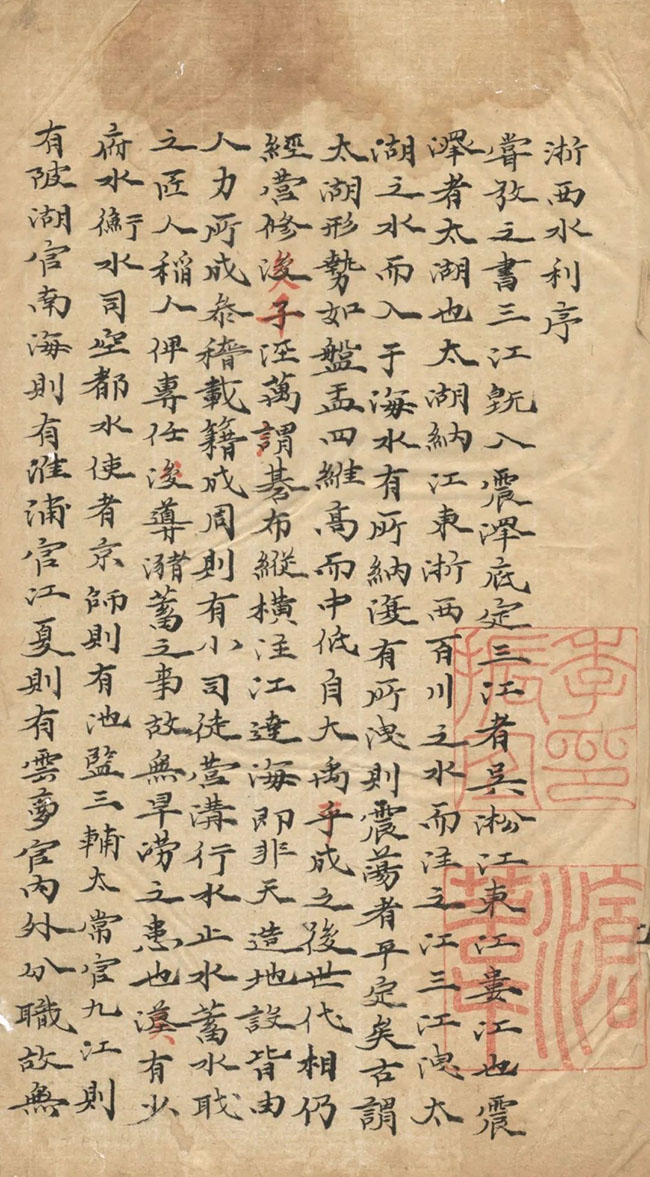 浙西水利序
嘗攷之書三江旣入震澤底定三江者吳淞江東江婁江也震
澤者太湖也太湖納江東浙西百川之水而注之江三江洩太
湖之水而入于海水有所納復有所洩則震蕩者平定矣古謂
太湖形勢如盤盂四維高而中低自大禹乎成之後世代相仍
經營修浚子涇萬謂碁布縱橫注江達海即非天造地設皆由
人力所成叅稽載籍成周則有小司徒營溝行水止水蓄水職
之匠人稲人俾專任浚導瀦蓄之事故無旱澇之患也漢有少
府水衡水司空都水使者京師則有池監三輔太常官九江則
有陂湖官南海則有淮浦官江夏則有雲夢官內外分職故無
李印振宜
滄葦